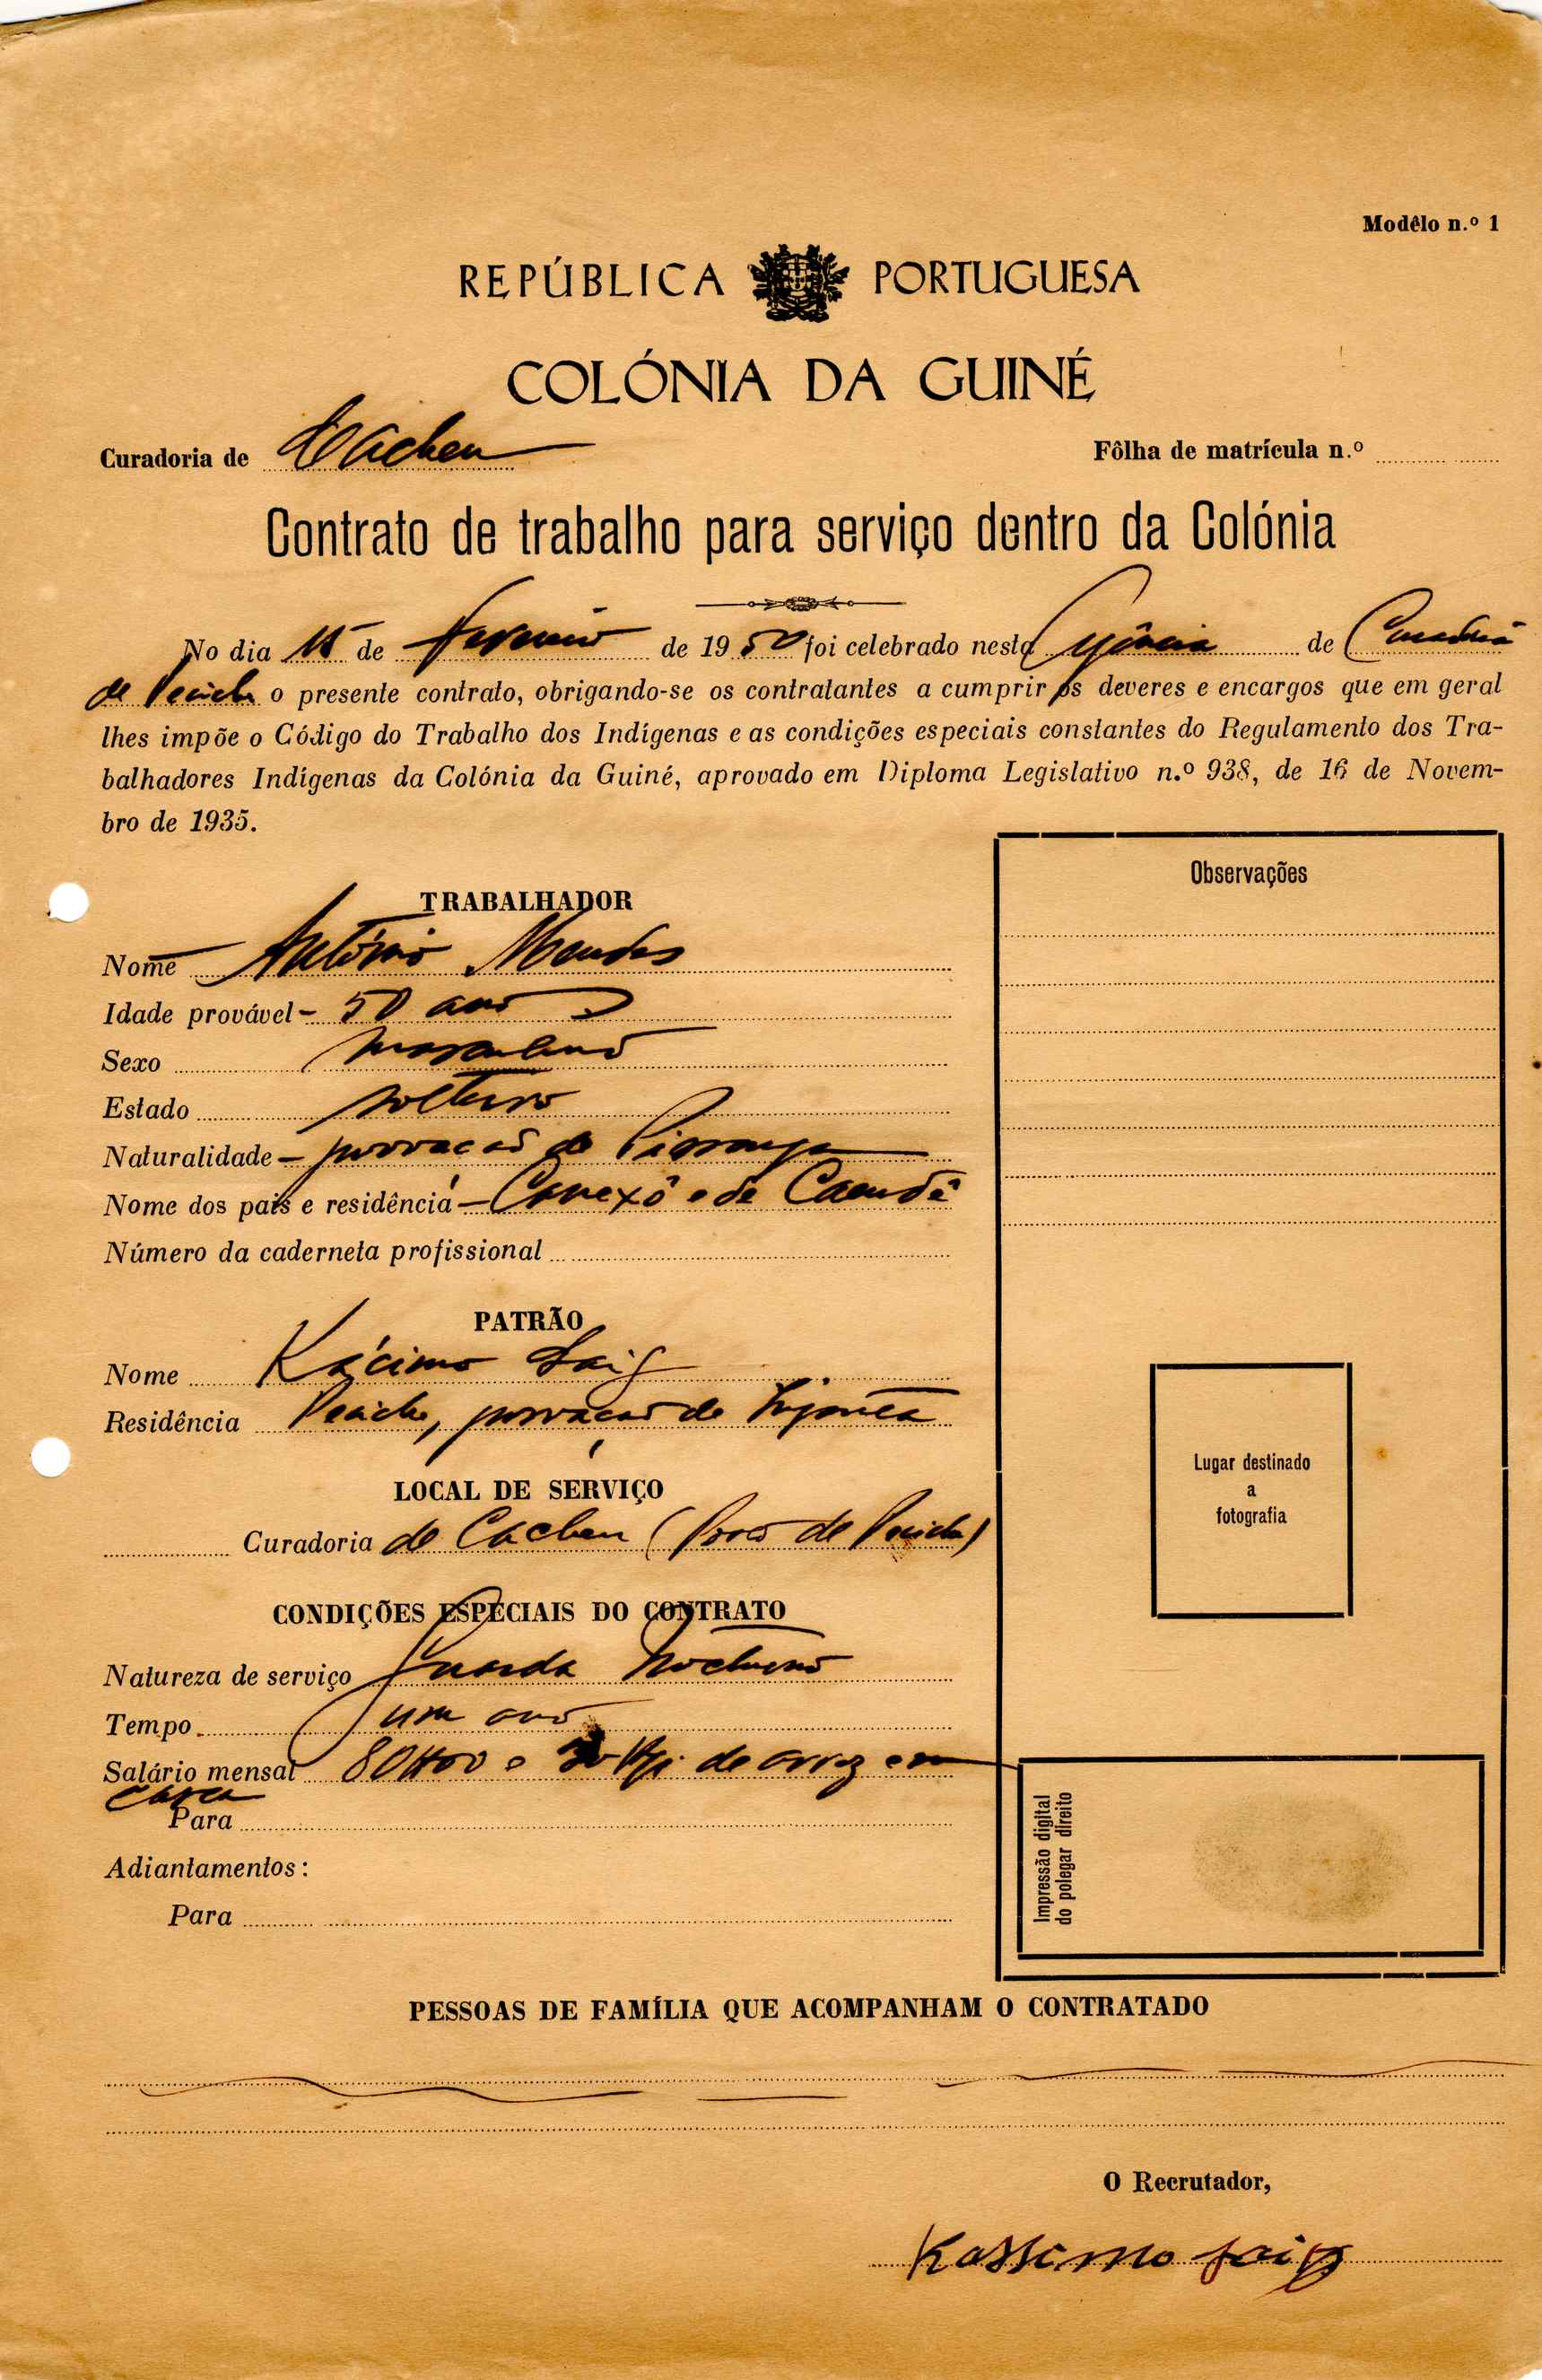 Modêlo n.º 1
REPÚBLICA PORTUGUESA
COLÓNIA DA GUINÉ
Curadoria de Cacheu Fôlha de matrícula n.º
Contrato de trabalho para serviço dentro da Colónia
No dia 15 de Fevereiro de 1950 foi celebrado nesta Agência de Curadoria
de Pecixe o presente contrato, obrigando-se os contratantes a cumprir os deveres e encargos que em geral
lhes impõe o Código do Trabalho dos Indígenas e as condições especiais constantes do Regulamento dos Tra-
balhadores Indígenas da Colónia da Guiné, aprovado em Diploma Legislativo n.º 938, de 16 de Novem-
bro de 1935.
Observações
TRABALHADOR
Nome António Mendes
Idade provável - 50 anos
Sexo masculino
Estado solteiro
Naturalidade - povoação de
Nome dos pais e residência - Canexô e de Caendê
Número da caderneta profissional
PATRÃO
Nome Kácimo Faiz
Residência Pecixe, povoação de
LOCAL DE SERVIÇO
Curadoria de Cacheu (Posto de Pecixe)
Lugar destinado
a
fotografia
CONDIÇÕES ESPECIAIS DO CONTRATO
Natureza de serviço Guarda Nocturno
Tempo um ano
Salário mensal 80$00 e 30 Kgs de arroz em
casca
Para
Adiantamentos:
Para
Impressão digital
do polegar direito
PESSOAS DE FAMÍLIA QUE ACOMPANHAM O CONTRATADO
O Recrutador,
Kassimo Faiz